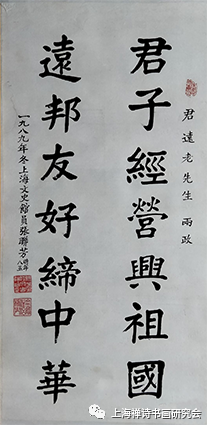 君遠老先生 兩政
君子經營興祖國
遠邦友好締中華
一九八九年冬上海文史館員張聯芳時年八五
上海禅诗书画研究会